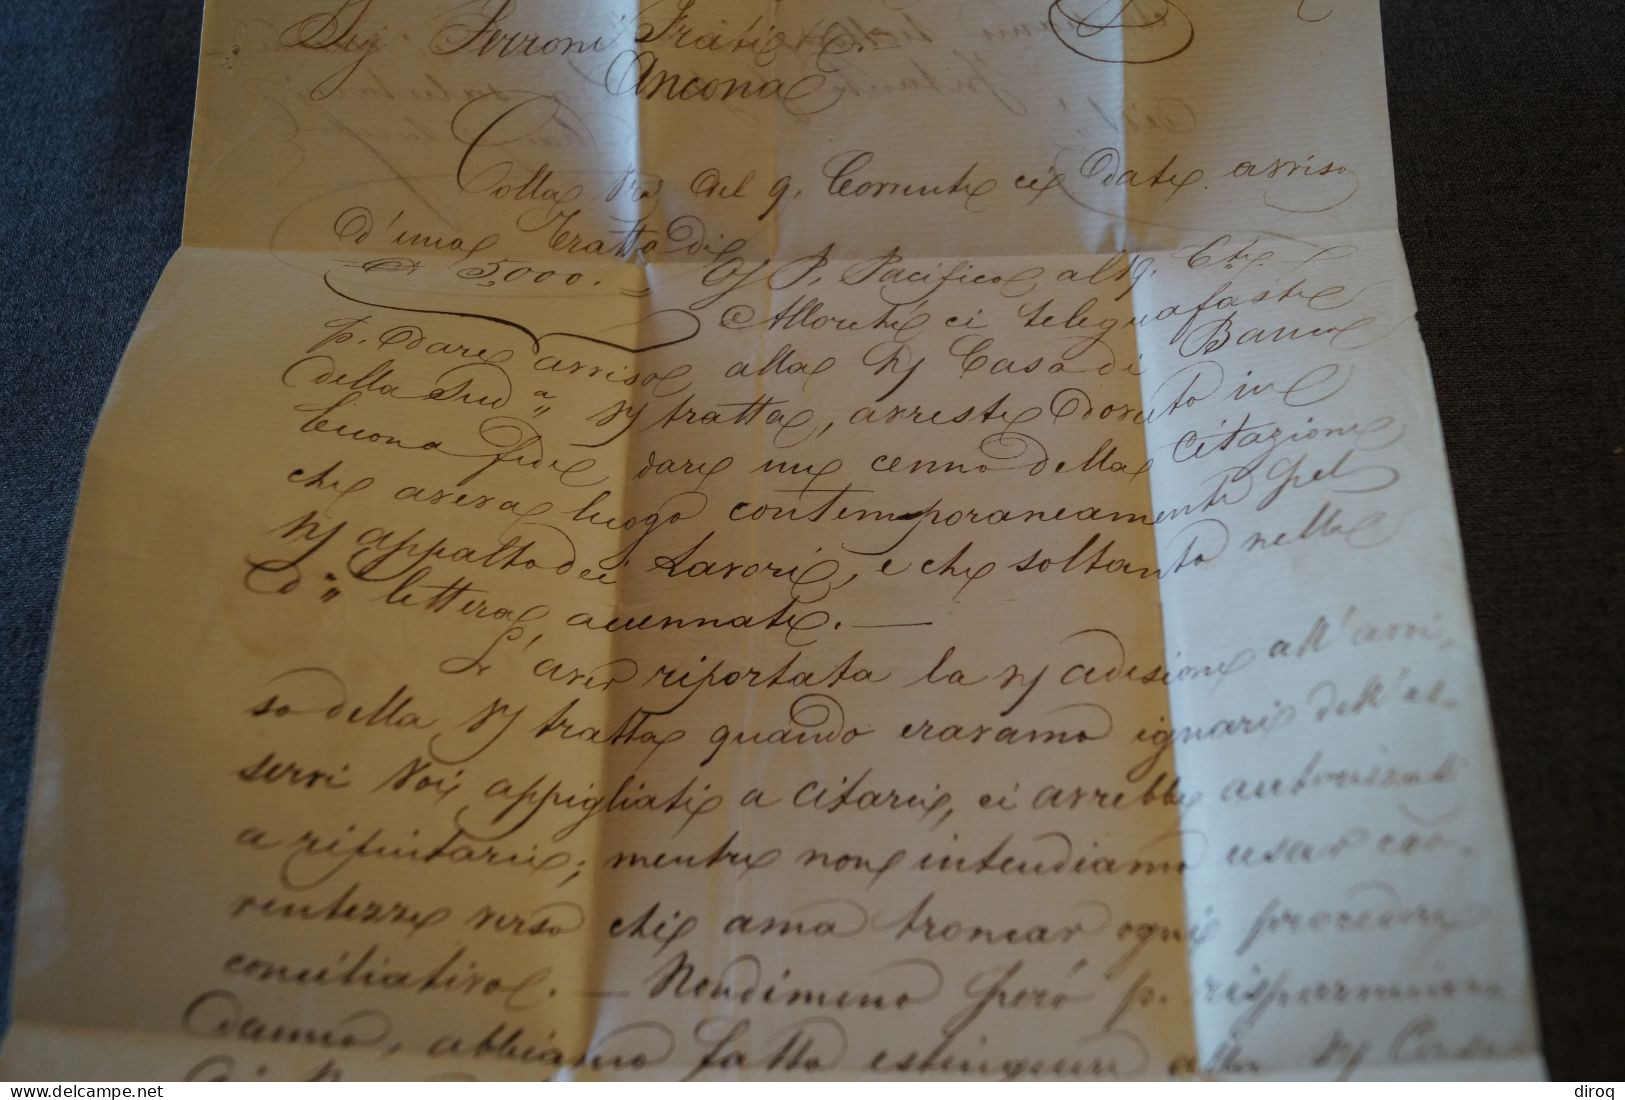 Sigi Ferroni Frat.i
Ancona
Colla Vra del 9. Corrente ci date avviso
d'una Tratta di
5,000. = O/ P. Pacifico, al 19. Cte.
Allorché ci telegrafaste
p. dare avviso, alla N/ Casa di Banca
della Sud.a V/ tratta, avreste dovuto in
buona fede, dare un cenno della citazione
che aveva luogo contemporaneamente pel
N/ appalto dei Lavori, e che soltanto nella
d.a lettera accennate. —
L'aver riportata la N/ adesione all'avvi-
so della V/ tratta quando eravamo ignari dell'es-
servi Voi appigliati a citarci, ci avrebbe autorizzati
a rifiutarci; mentre non intendiamo usar cor-
rentezze verso chi ama troncar ogni procedere
conciliativo. — Nondimeno però p. risparmiare
danno, abbiamo fatto estinguere alla N/ Cassa
diroq